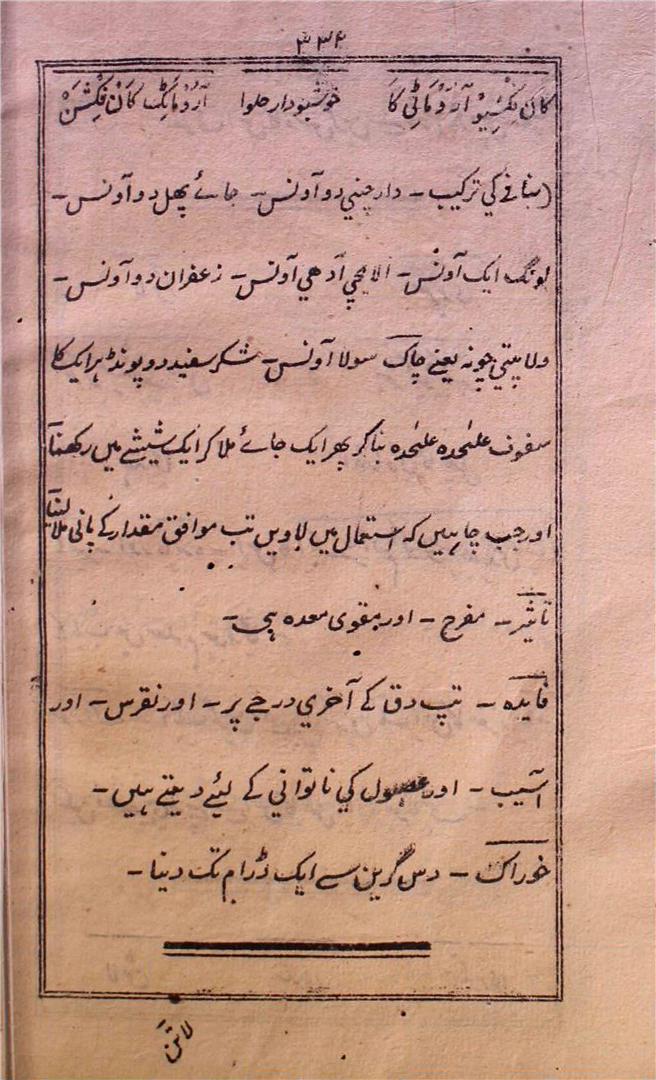 ۳۳۴
کان فکشیو آرومٹی کا خوشبودار حلوا آرومٹک کان فکشن
(بنانے کي ترکیب ۔ دارچيني دو آونس ۔ جائے پھل دو آونس ۔
لونگ ایک آونس ۔ الایچي آدھي آونس ۔ زعفران دو آونس ۔
ولایتي چونہ یعنے چاک سولا آونس ۔ شکر سفید دو پونڈ ہر ایک کا
سفوف علٰحدہ علٰحدہ بناکر پھر ایک جائے ملاکر ایک شیشے میں رکھنا
اور جب چاہیں کہ استعمال میں لاویں تب موافق مقدار کے پانی ملا لینا
تاثیر ۔ مفرح ۔ اور مقوی معدہ ہی ۔
فایدہ ۔ تپ دق کے آخري درجے پر ۔ اور نقرس ۔ اور
آسیب ۔ اور کي ناتواني کے لیئے دیتے ہیں ۔
خوراک ۔ دس گرین سے ایک ڈرام تک دینا ۔